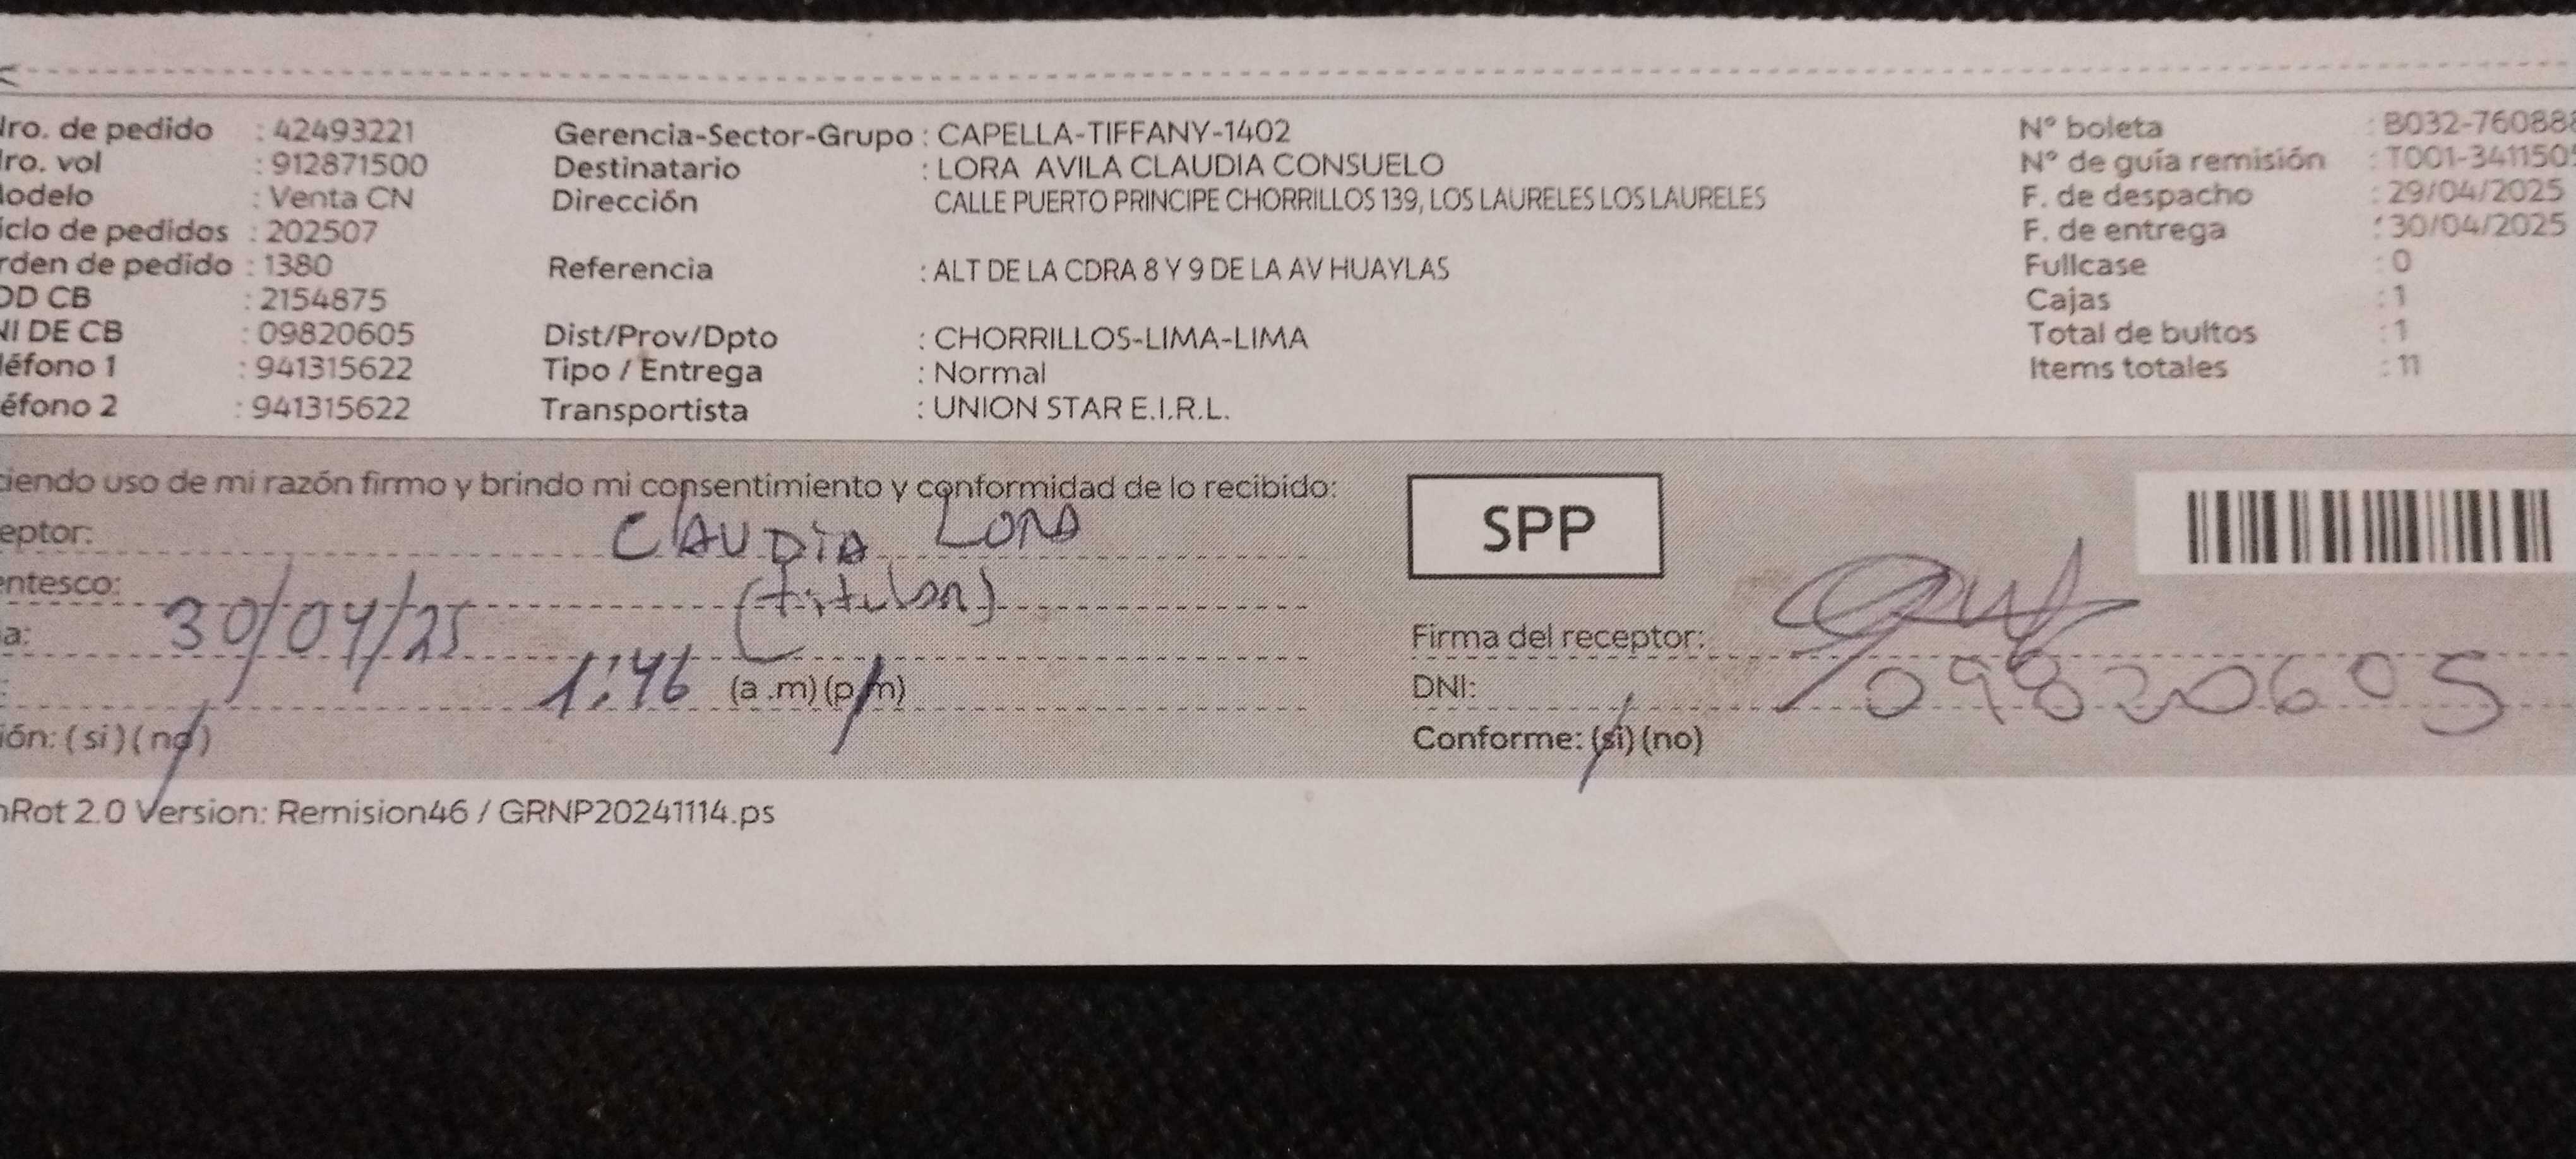 ro. de pedido : 42493221 Gerencia-Sector-Grupo : CAPELLA-TIFFANY-1402 N° boleta : B032-760888
ro. vol : 912871500 Destinatario : LORA AVILA CLAUDIA CONSUELO N° de guía remisión : T001-3411505
odelo : Venta CN Dirección CALLE PUERTO PRINCIPE CHORRILLOS 139, LOS LAURELES LOS LAURELES F. de despacho : 29/04/2025
iclo de pedidos : 202507 F. de entrega : 30/04/2025
rden de pedido : 1380 Referencia : ALT DE LA CDRA 8 Y 9 DE LA AV HUAYLAS Fullcase : 0
OD CB : 2154875 Cajas : 1
NI DE CB : 09820605 Dist/Prov/Dpto : CHORRILLOS-LIMA-LIMA Total de bultos : 1
léfono 1 : 941315622 Tipo / Entrega : Normal Items totales : 11
éfono 2 : 941315622 Transportista : UNION STAR E.I.R.L.
ciendo uso de mi razón firmo y brindo mi consentimiento y conformidad de lo recibido:
eptor: CLAUDIA LORA SPP
entesco: (titular)
a: 30/04/25 Firma del receptor:
: 1:46 (a .m) (p.m) DNI: 09820605
ión: (si) (no) Conforme: (si) (no)
nRot 2.0 Version: Remision46 / GRNP20241114.ps